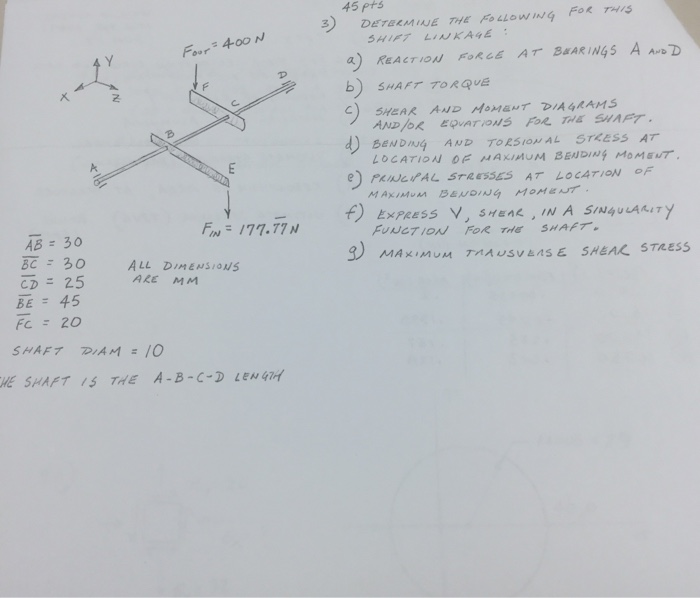 45 pts
3) DETERMINE THE FOLLOWING FOR THIS
SHIFT LINKAGE :
a) REACTION FORCE AT BEARINGS A AND D
b) SHAFT TORQUE
c) SHEAR AND MOMENT DIAGRAMS
AND/OR EQUATIONS FOR THE SHAFT.
d) BENDING AND TORSIONAL STRESS AT
LOCATION OF MAXIMUM BENDING MOMENT.
e) PRINCIPAL STRESSES AT LOCATION OF
MAXIMUM BENDING MOMENT.
f) EXPRESS V, SHEAR, IN A SINGULARITY
FUNCTION FOR THE SHAFT.
g) MAXIMUM TRANSVERSE SHEAR STRESS
Y
X
Z
Fout = 400 N
F
D
C
B
A
E
FIN = 177.77 N
AB = 30
BC = 30
CD = 25
BE = 45
FC = 20
ALL DIMENSIONS
ARE MM
SHAFT DIAM = 10
HE SHAFT IS THE A-B-C-D LENGTH